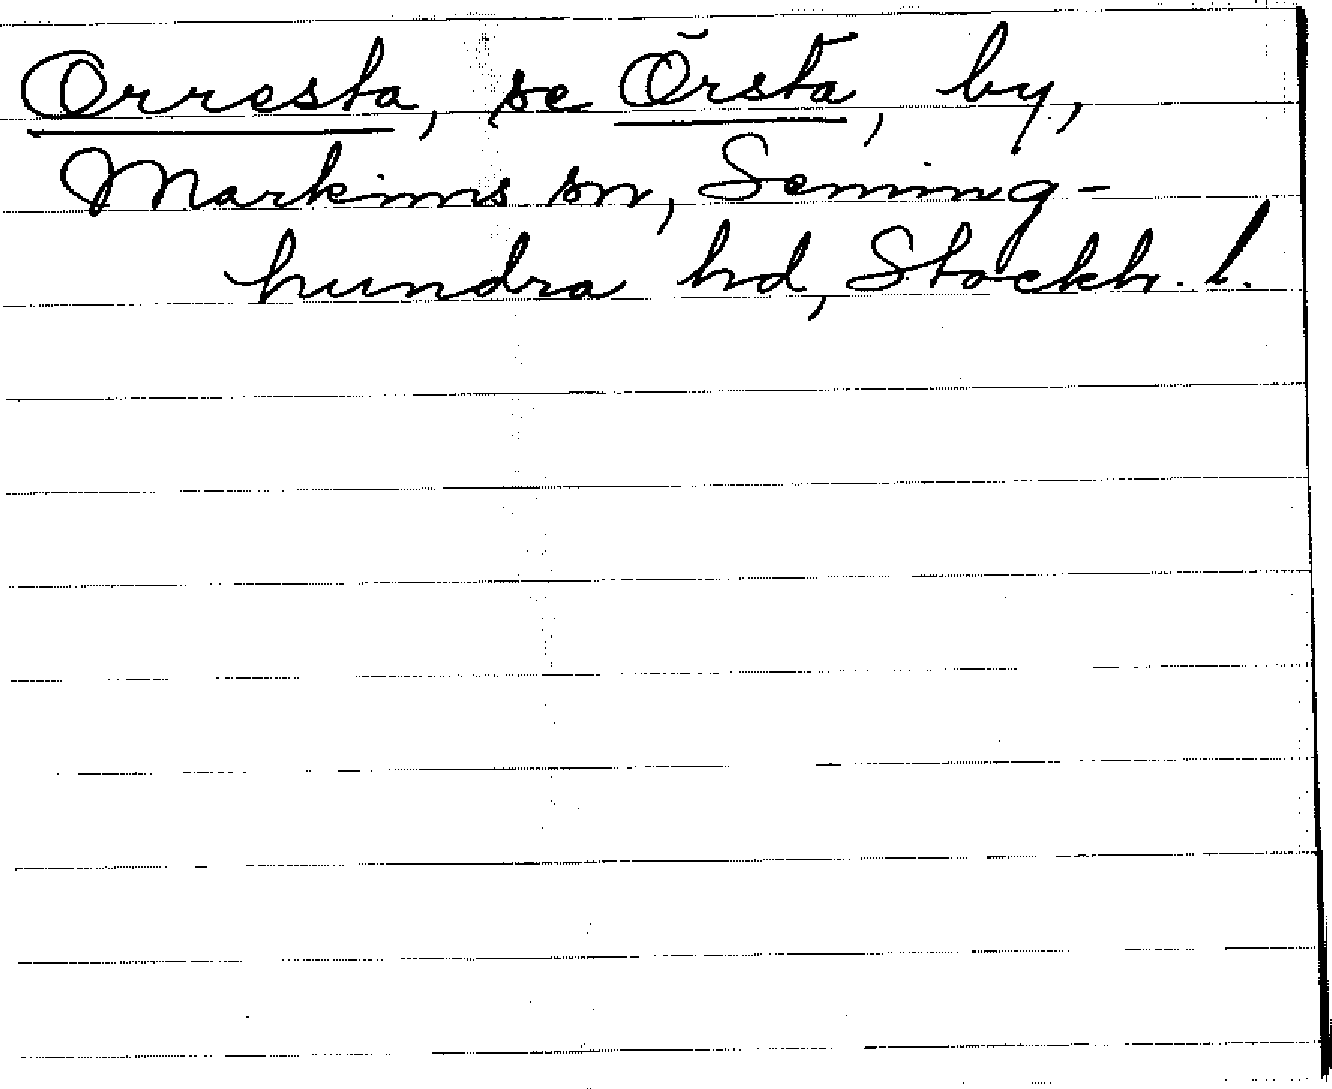 Orresta, se Örsta, by,
Markims sn, Seming-
hundra hd, Stockh. l.